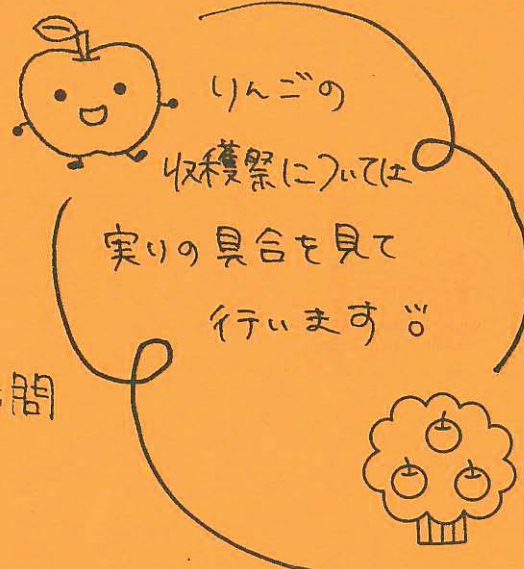 りんごの
収穫祭については
実りの具合を見て
行います
間